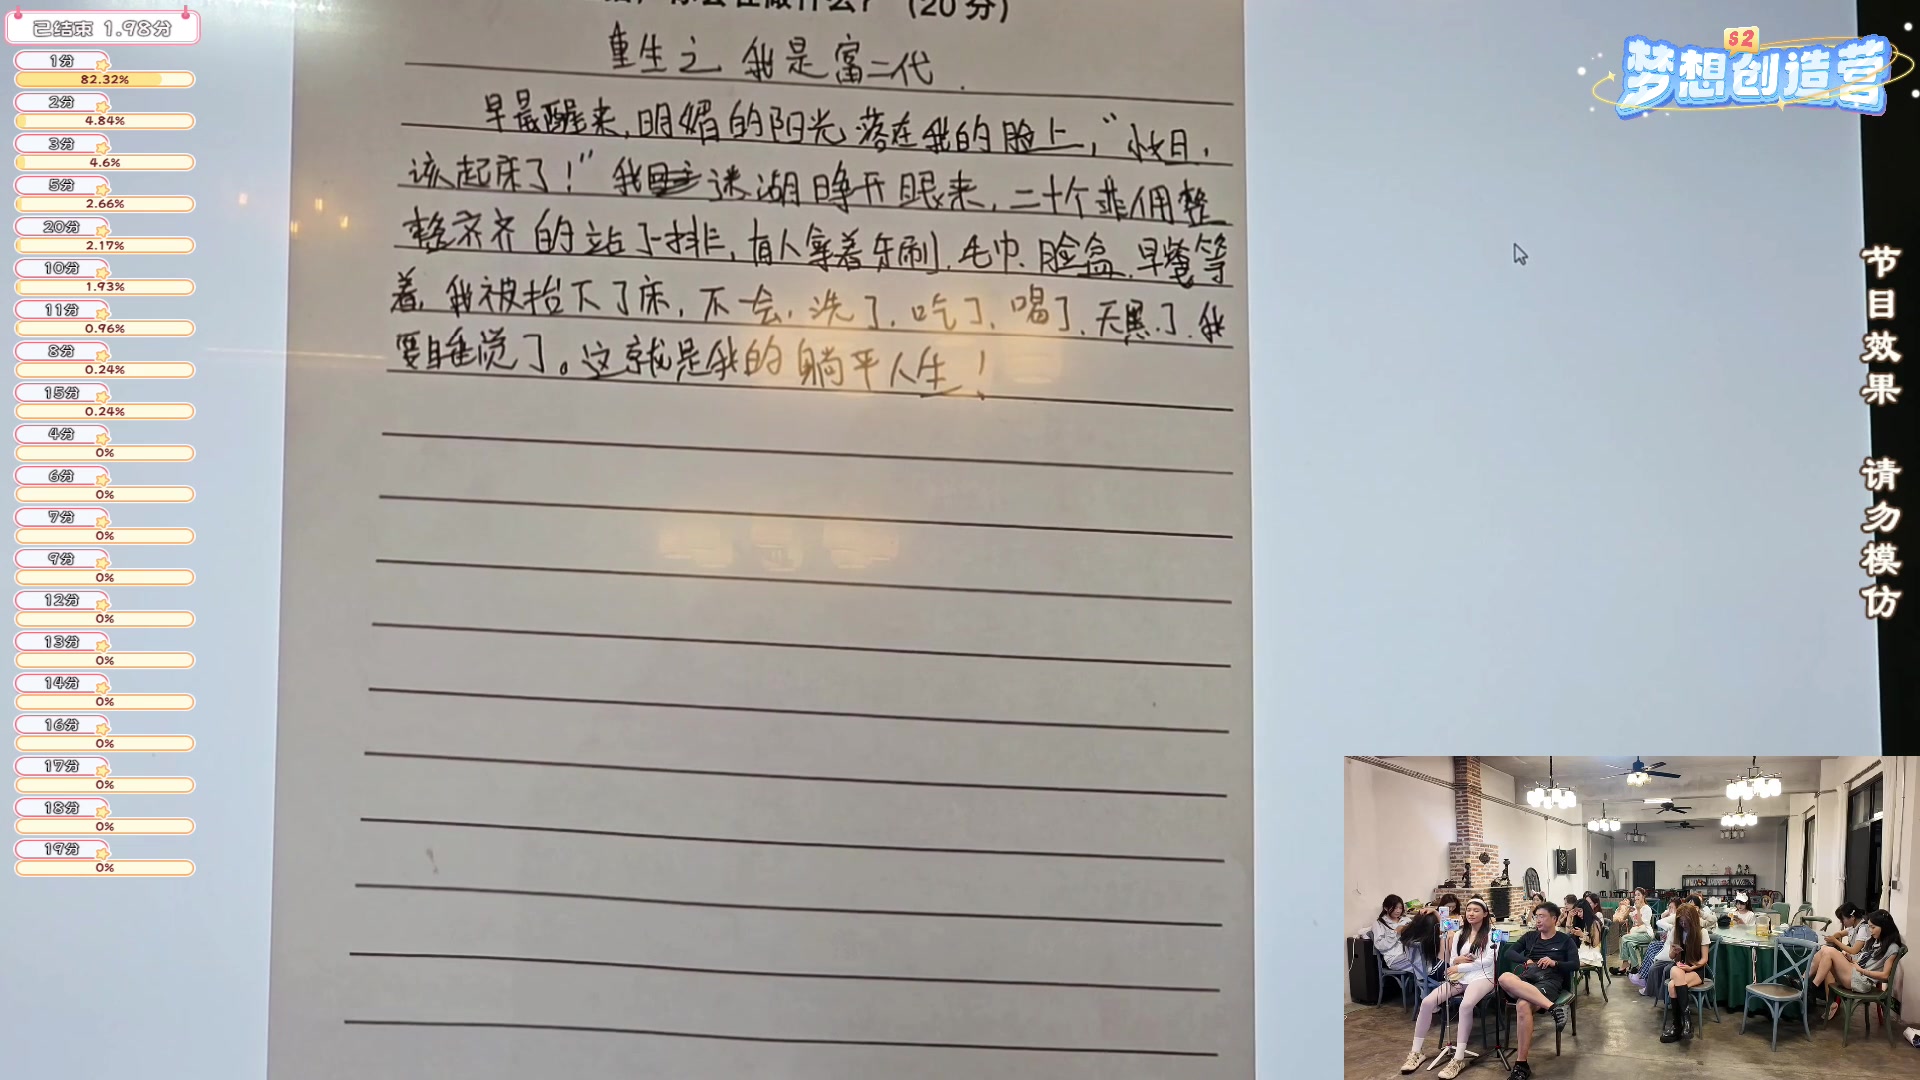 已结束 1.98分
1分
82.32%
2分
4.84%
3分
4.6%
5分
2.66%
20分
2.17%
10分
1.93%
11分
0.96%
8分
0.24%
15分
0.24%
4分
0%
6分
0%
7分
0%
9分
0%
12分
0%
13分
0%
14分
0%
16分
0%
17分
0%
18分
0%
19分
0%
(20分)
重生之 我是富二代.
早晨醒来,明媚的阳光落在我的脸上,“
该起床了!”我迷湖睁开眼来,二十个菲佣整
整齐齐的站了排,有人拿着牙刷.毛巾.脸盆.早餐等
着,我被抬下了床,不一会,洗了.吃了.喝了.天黑了.我
要睡觉了。这就是我的躺平人生!
S2
梦想创造营
节目效果 请勿模仿